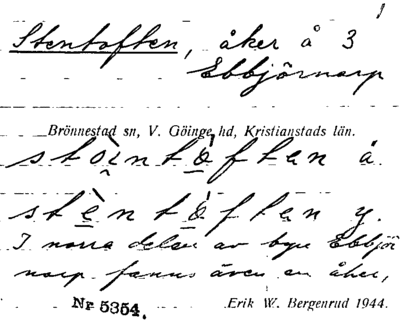 1
Stentoften, åker å 3
Ebbjörnarp
Brönnestad sn, V. Göinge hd, Kristianstads län.
stòi̯ntò̱ften å.
stè̱ntò̱ften y.
I norra delen av byn Ebbjör
narp fanns även en åker,
Nr 5354. Erik W. Bergenrud 1944.